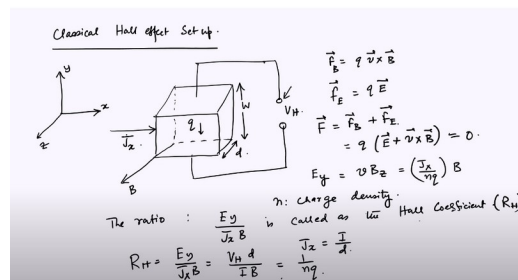 Classical Hall effect Set up.
y
x
z
J⃗x
q ↓
W
d
B
VH
F⃗B = q v⃗ × B⃗
f⃗E = q E⃗
F⃗ = f⃗B + f⃗E
= q (E⃗ + v⃗ × B⃗) = 0.
Ey = v Bz = (Jx/nq) B
n: charge density.
The ratio : Ey/JxB is called as the Hall Coefficient (RH
Jx = I/d.
RH = Ey/JxB = VH d/IB = 1/nq.